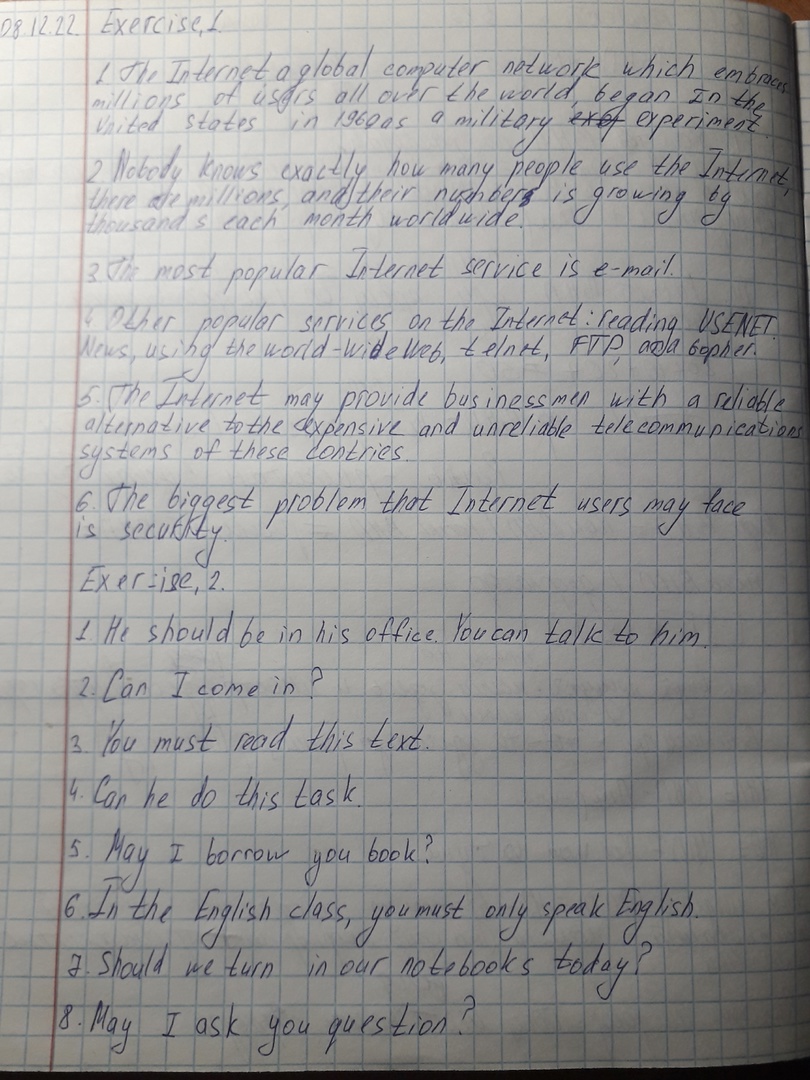 08.12.22 Exercise, 1.
1 The Internet a global computer network which embraces
millions of users all over the world, began In the
United states in 1969 as a military experiment.
2 Nobody knows exactly how many people use the Internet,
there are millions, and their numbers is growing by
thousands each month worldwide.
3 The most popular Internet service is e-mail.
4 Other popular services on the Internet: reading USENET
News, using the world-wide Web, telnet, FTP, and Gopher.
5. The Internet may provide businessmen with a reliable
alternative to the expensive and unreliable telecommunications
systems of these contries.
6. The biggest problem that Internet users may face
is security.
Exercise, 2.
1. He should be in his office. You can talk to him.
2. Can I come in?
3. You must read this text.
4. Can he do this task.
5. May I borrow you book?
6. In the English class, you must only speak English.
7. Should we turn in our notebooks today?
8. May I ask you question?